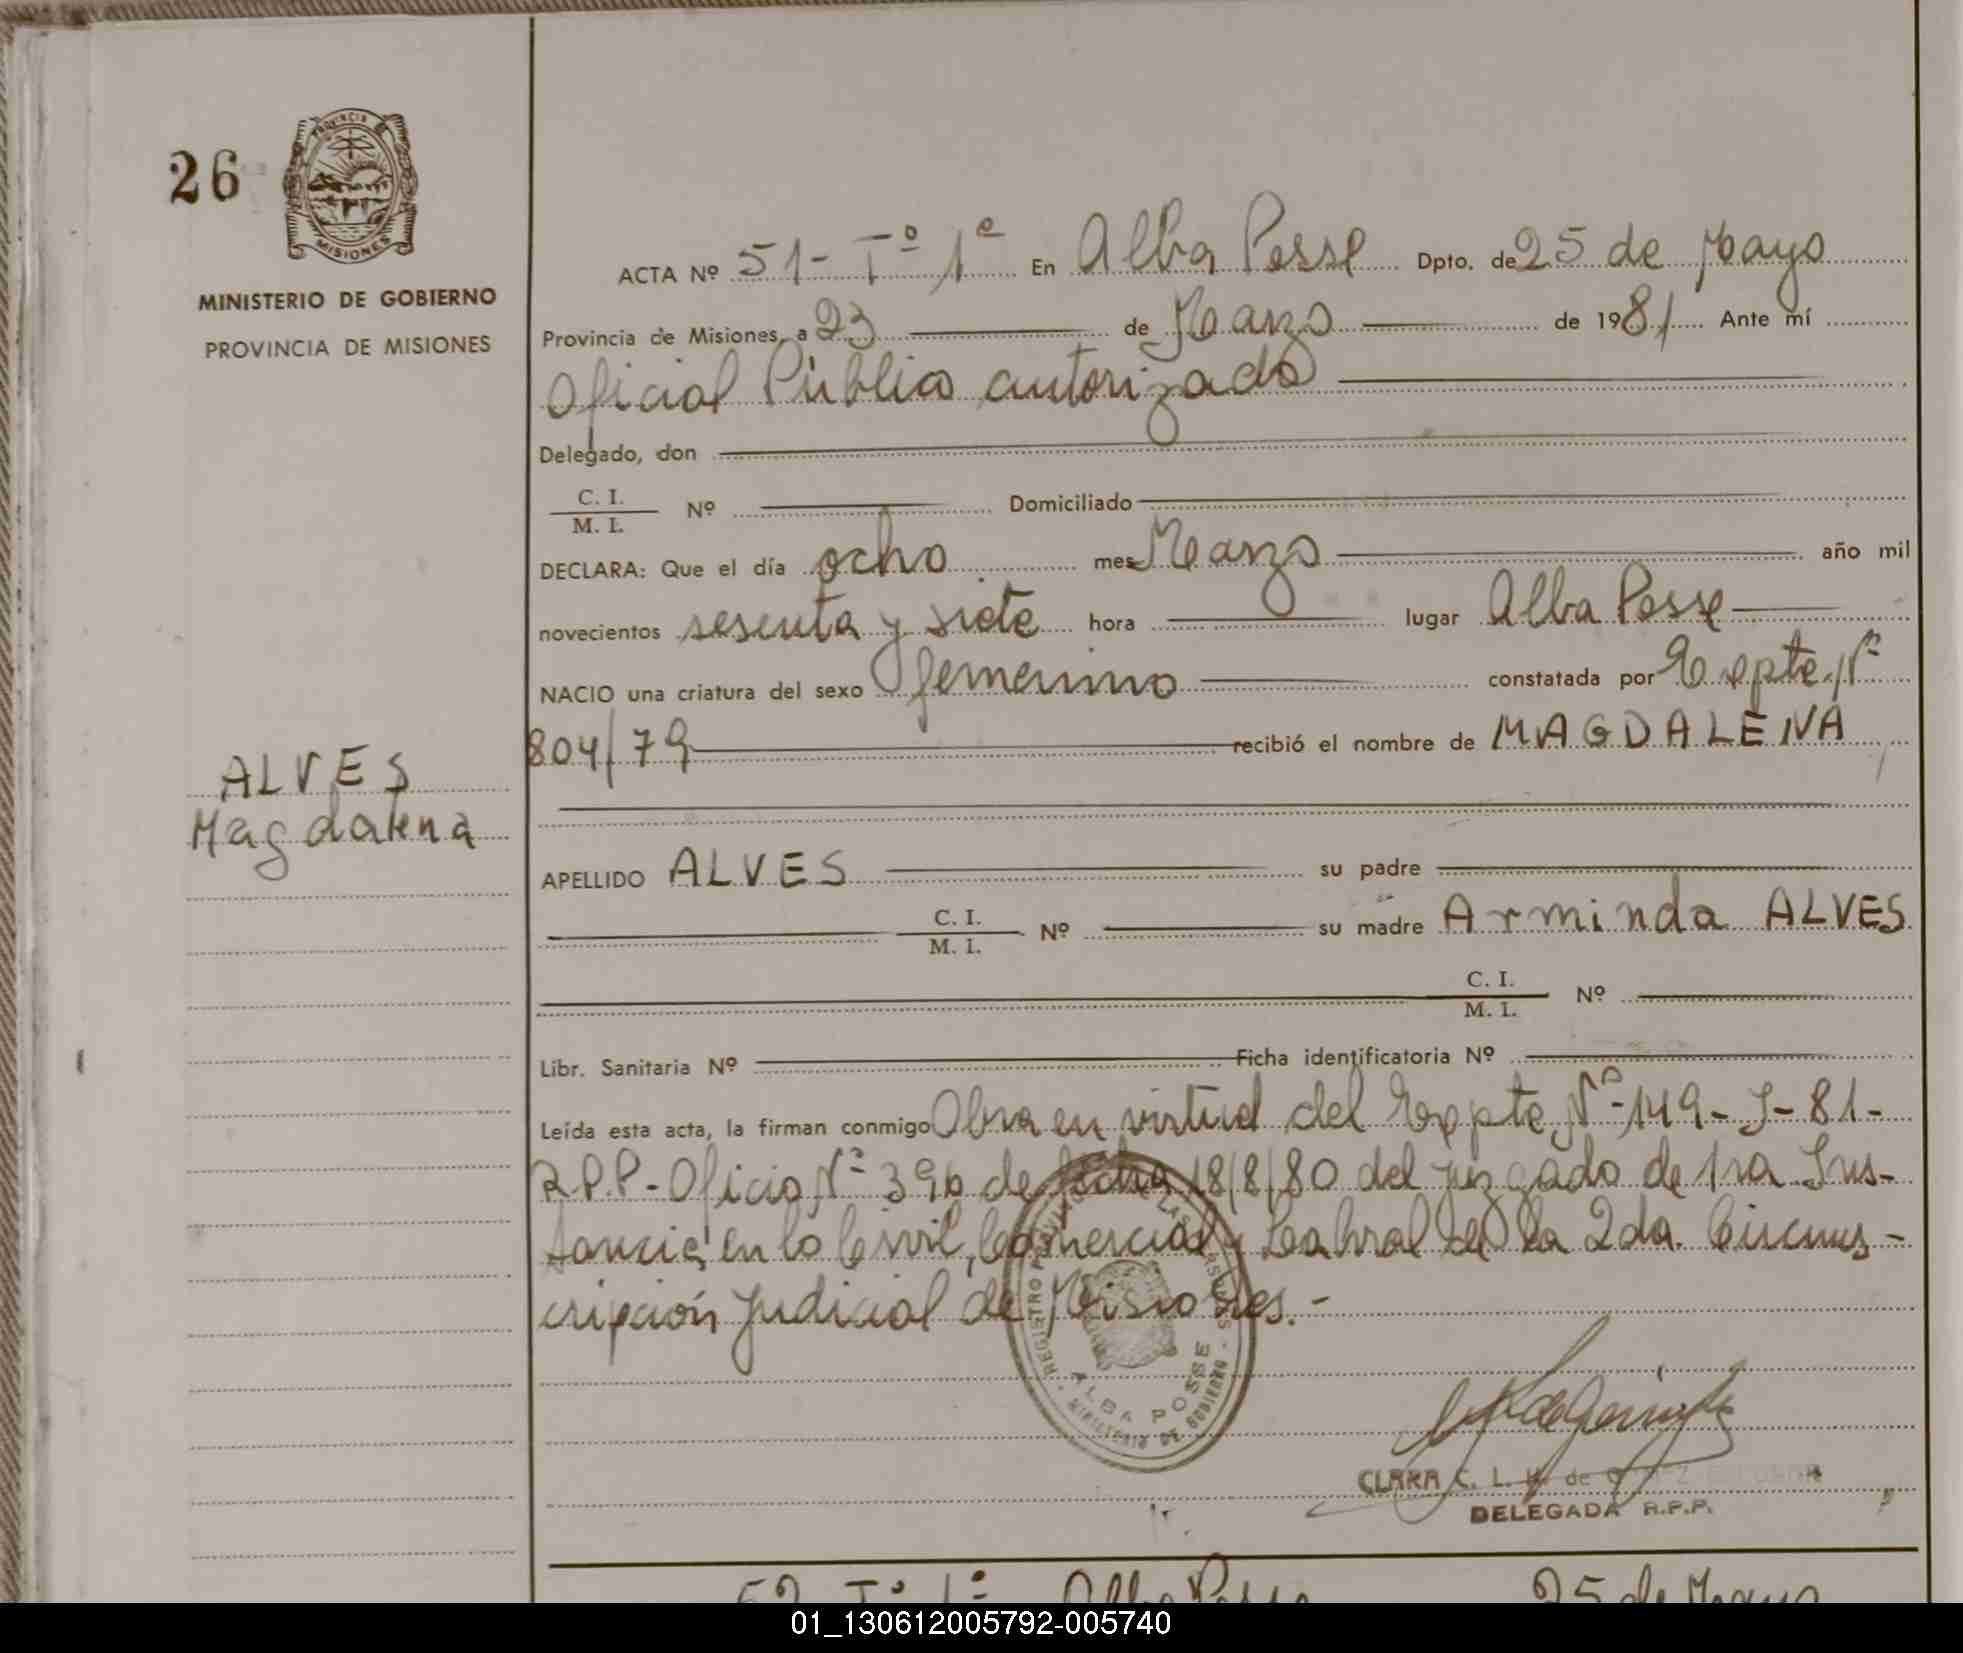 26
PROVINCIA
MISIONES
MINISTERIO DE GOBIERNO
PROVINCIA DE MISIONES
ALVES
Magdalena
ACTA Nº 51- Tº 1º En Alba Posse Dpto. de 25 de Mayo
Provincia de Misiones, a 23 de Marzo de 1981 Ante mí
Oficial Público autorizado
Delegado, don
C. I.
M. I. Nº Domiciliado
DECLARA: Que el día ocho mes Marzo año mil
novecientos sesenta y siete hora lugar Alba Posse
NACIO una criatura del sexo femenino constatada por Expte. Nº
804/79 recibió el nombre de MAGDALENA
APELLIDO ALVES su padre
C. I.
M. I. Nº su madre Arminda ALVES
C. I.
M. I. Nº
Libr. Sanitaria Nº Ficha identificatoria Nº
Leída esta acta, la firman conmigo Obra en virtud del Expte. Nº 149-J-81-
R.P.P- Oficio Nº 396 de fecha 18/8/80 del juzgado de 1ra Ins-
tancia en lo Civil, Comercial y Laboral de la 2da. Circuns-
cripción Judicial de Misiones.-
ALBA POSSE
MINISTERIO DE GOBIERNO
CLARA C. L. de
DELEGADA R.P.P.
52 Tº 1º Alba Posse 25 de Mayo
01_130612005792-005740